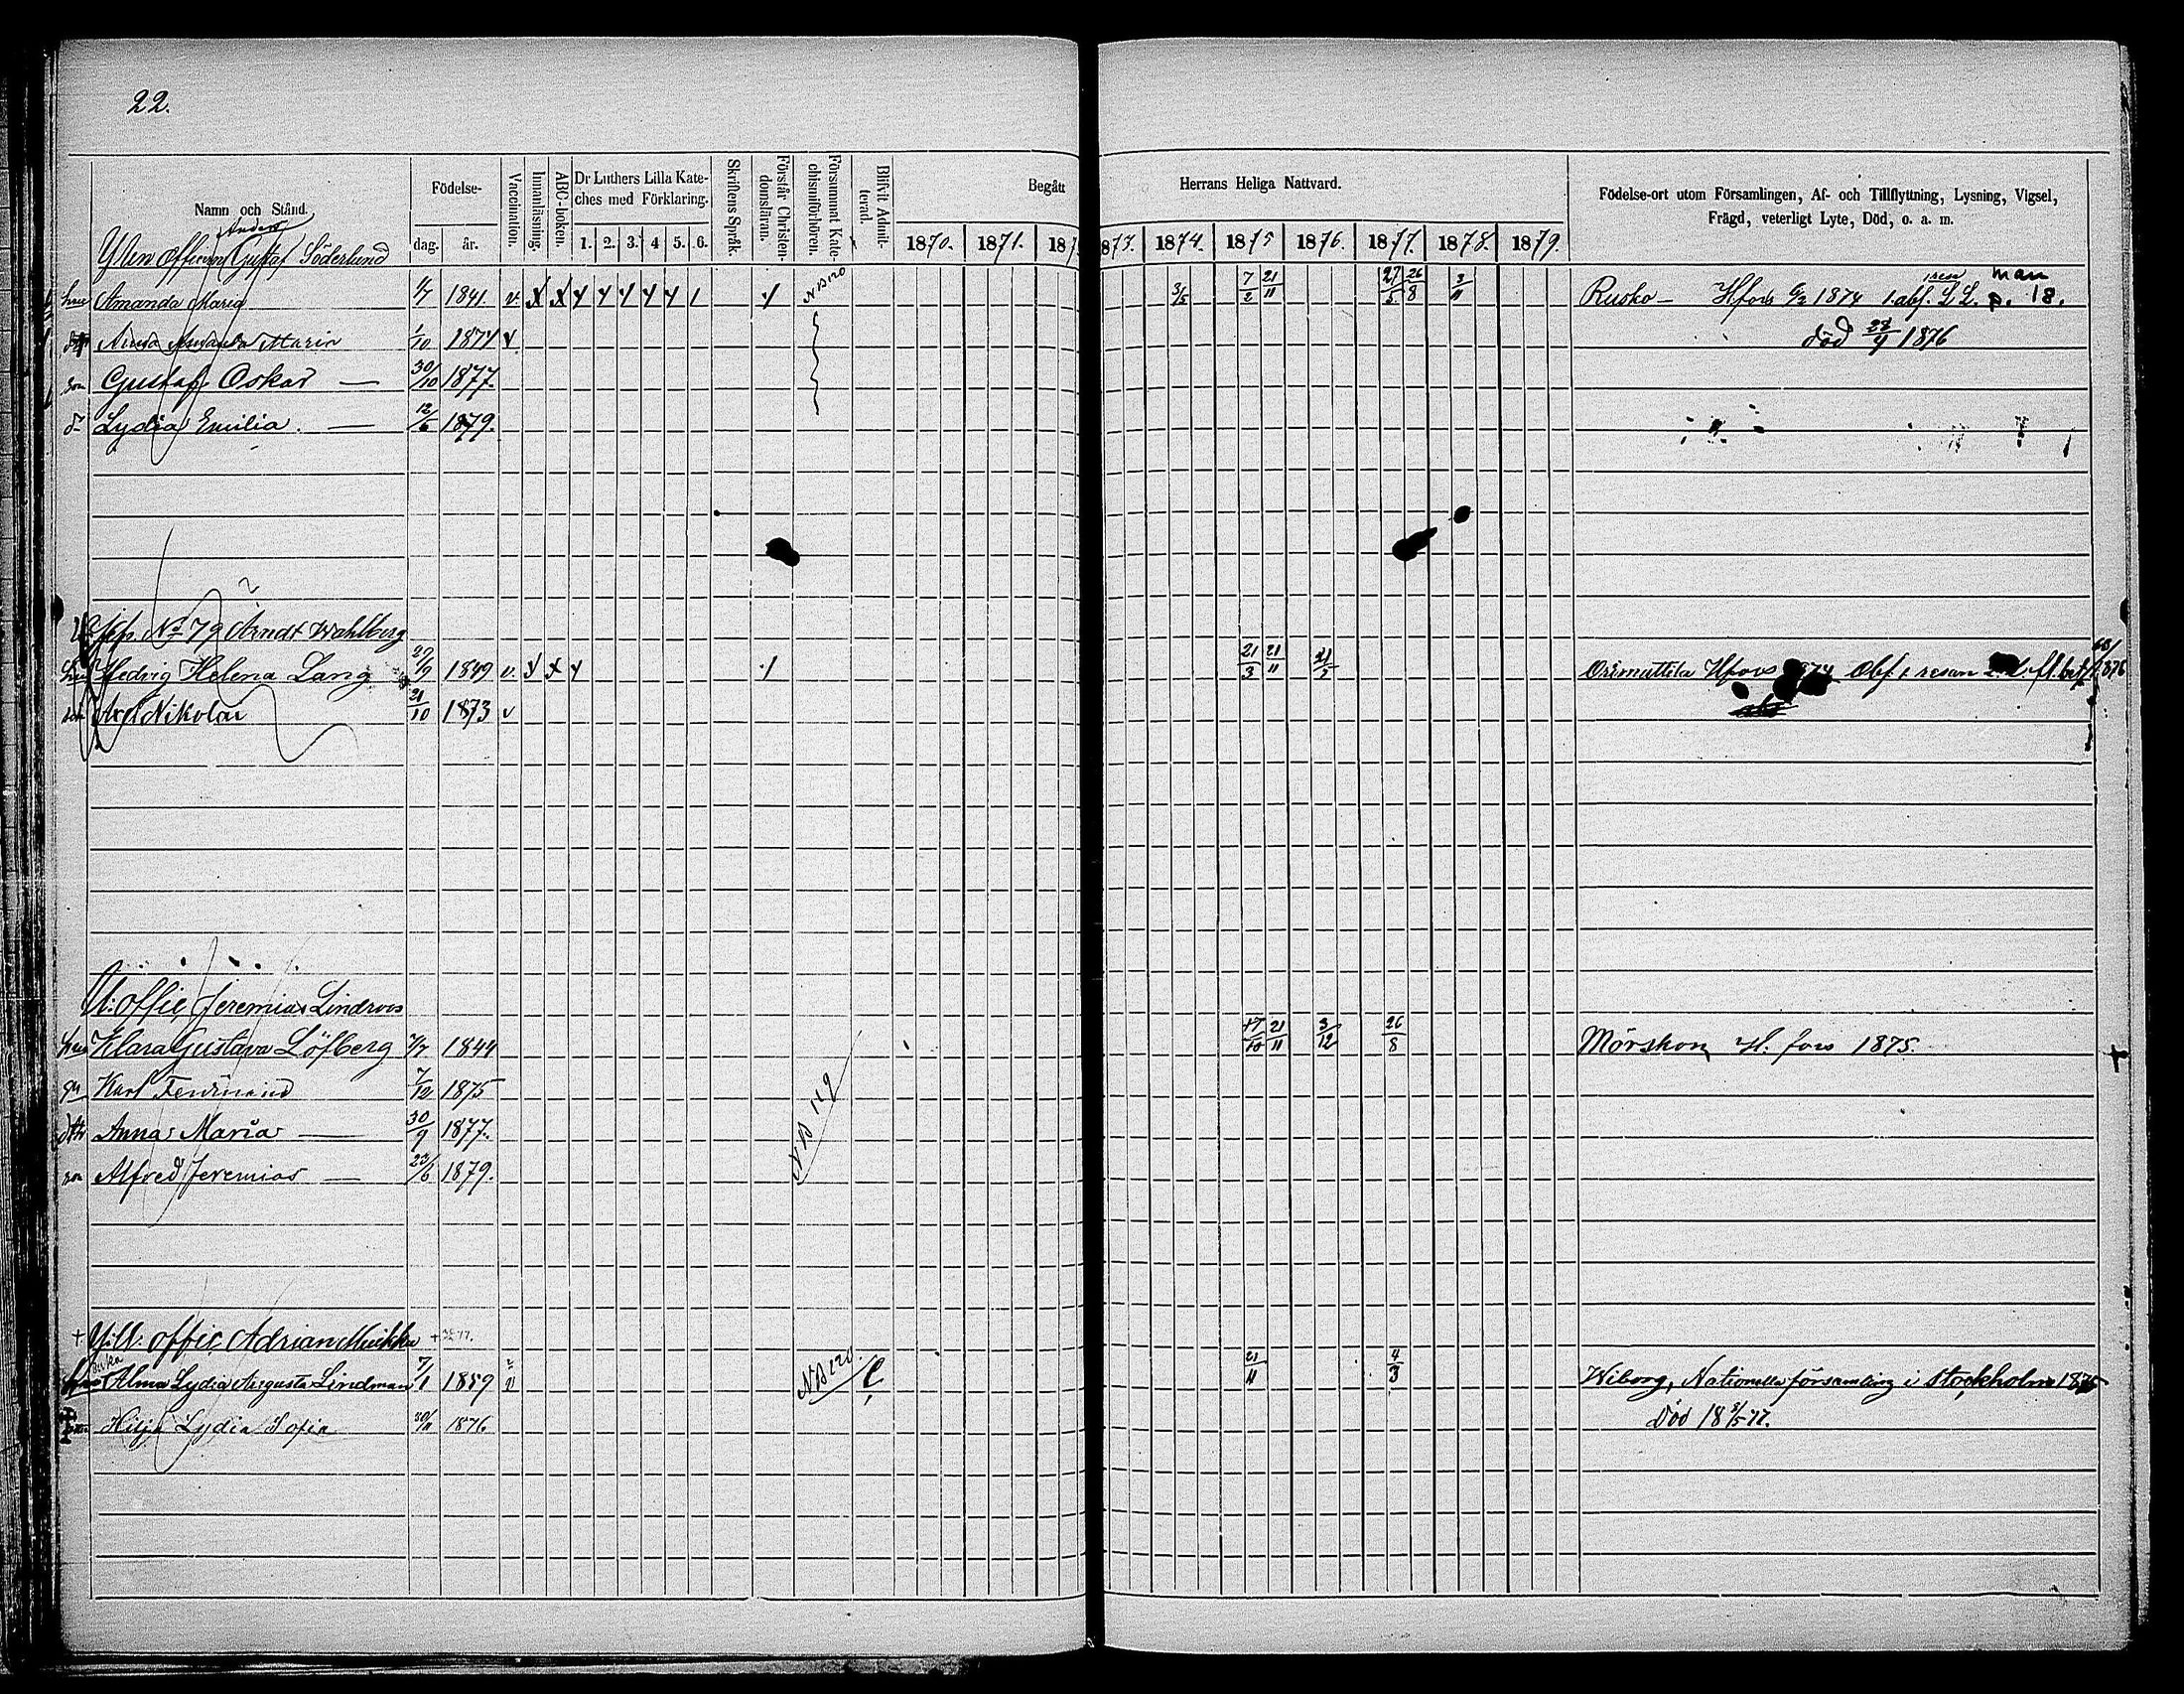 22.
Namn och Stånd.
Födelse-
dag.
år.
Vaccination.
Innanläsning.
ABC-boken.
Dr Luthers Lilla Kate-
ches med Förklaring.
1. 2. 3. 4 5. 6.
Skriftens Språk.
Förstår Christen-
domsläran.
Försummat Kate-
chismiförhören.
Blifvit Admit-
terad.
Begått Herrans Heliga Nattvard.
1870. 1871. 187 873. 1874. 1875 1876. 1877. 1878. 1879.
Födelse-ort utom Församlingen, Af- och Tillflyttning, Lysning, Vigsel,
Frägd, veterligt Lyte, Död, o. a. m.
Anders
Gustaf Söderlund
Amanda Maria 1841 v. NB 120 3/5 7/2 21/11 27/5 26/8 3/11 Rusko - Hfors 1874 p. 18.
Amanda Maria 1/10 1874 v död 28/4 1876
son Gustaf Oskar — 30/10 1877
d Lydia Emilia. — 12/6 1879.
No 79 Arndt Wahlberg
Hedvig Helena Lang 1849 v. 21/3 21/11 Orimattila Hfors 1874
son Axel Nikolai 21/10 1873 v
U: offic Jeremias Lindroos
Klara Gustava Löfberg 1844 17/10 21/11 3/12 26/8 Mörskom H. fors 1875.
Karl Ferdinand 7/12 1875
dttr Anna Maria — 30/9 1877.
NB 119
son Alfred Jeremias — 23/6 1879.
+ offic Adrian
enka
Alma Lydia Augusta Lindman 7/1 1859 NB 120. 21/11 4/3 Wiborg, Nationella församling i Stockholm 1875
Hilja Lydia Sofia 1876 Död 18 3/5 77.